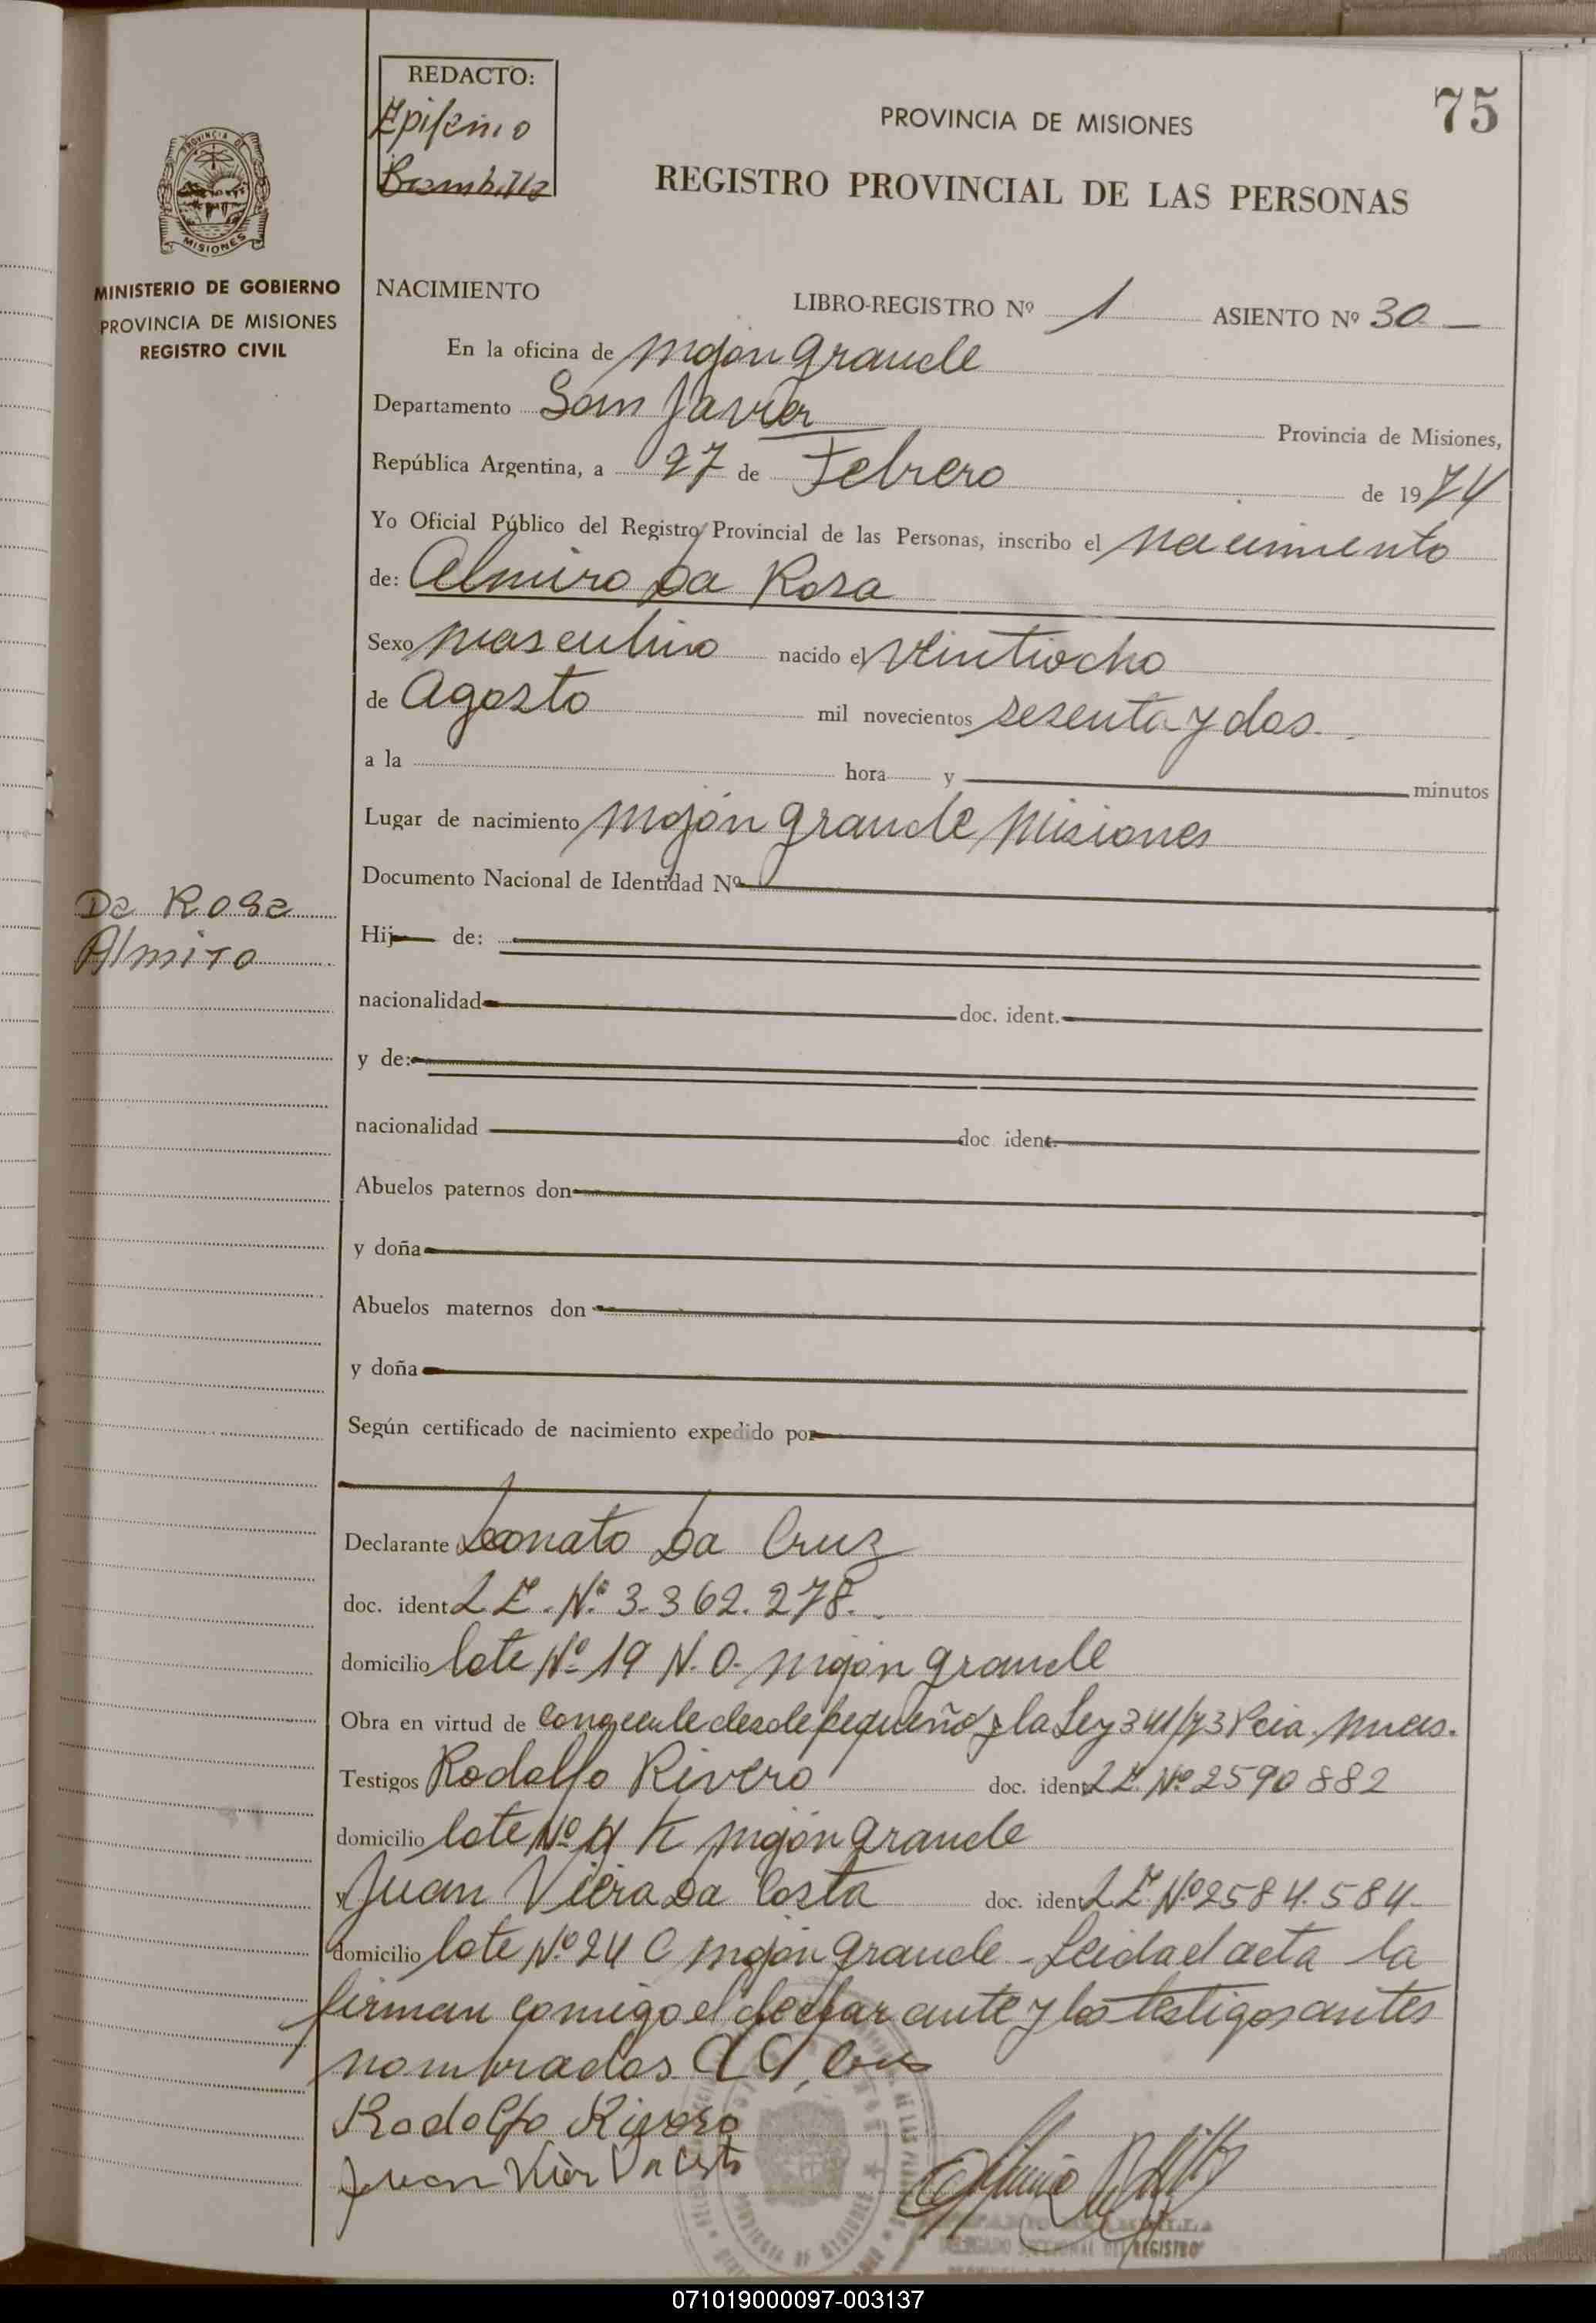 REDACTO:
Epifanio
Brambilla
PROVINCIA DE MISIONES
75
REGISTRO PROVINCIAL DE LAS PERSONAS
PROVINCIA DE
MISIONES
MINISTERIO DE GOBIERNO
PROVINCIA DE MISIONES
REGISTRO CIVIL
NACIMIENTO
LIBRO-REGISTRO Nº 1 ASIENTO Nº 30
En la oficina de Mojón grande
Departamento San Javier Provincia de Misiones,
República Argentina, a 27 de Febrero de 1974
Yo Oficial Público del Registro Provincial de las Personas, inscribo el nacimiento
de: Almiro Da Rosa
Sexo masculino nacido el veintiocho
de Agosto mil novecientos sesenta y dos
a la hora y minutos
Lugar de nacimiento Mojón grande Misiones
Documento Nacional de Identidad Nº
Da Rosa
Almiro
Hij de:
nacionalidad doc. ident.
y de:
nacionalidad doc ident.
Abuelos paternos don
y doña
Abuelos maternos don
y doña
Según certificado de nacimiento expedido por
Declarante Donato Da Cruz
doc. ident L E. Nº 3.362.278.
domicilio lote Nº 19 N. O. Mojón grande
Obra en virtud de conocerle desde pequeño y la Ley 341/73 Pcia. Mnes.
Testigos Rodolfo Rivero doc. ident L E. Nº 2590882
domicilio lote Nº K Mojón grande
y Juan Viera Da Costa doc. ident L E. Nº 2584.584
domicilio lote Nº 24 C Mojón grande - Leida el acta la
firman comigo el declarante y los testigos antes
nombrados
Rodolfo Rivero
Juan Vier Da Costa
DELEGADO SECCIONAL DEL REGISTRO
071019000097-003137